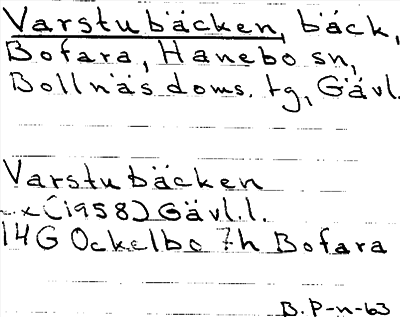 Varstubäcken, bäck,
Bofara, Hanebo sn,
Bollnäs doms. tg, Gävl.
Varstubäcken
x (1958) Gävl.l.
14G Ockelbo 7h Bofara
B. P-n-63